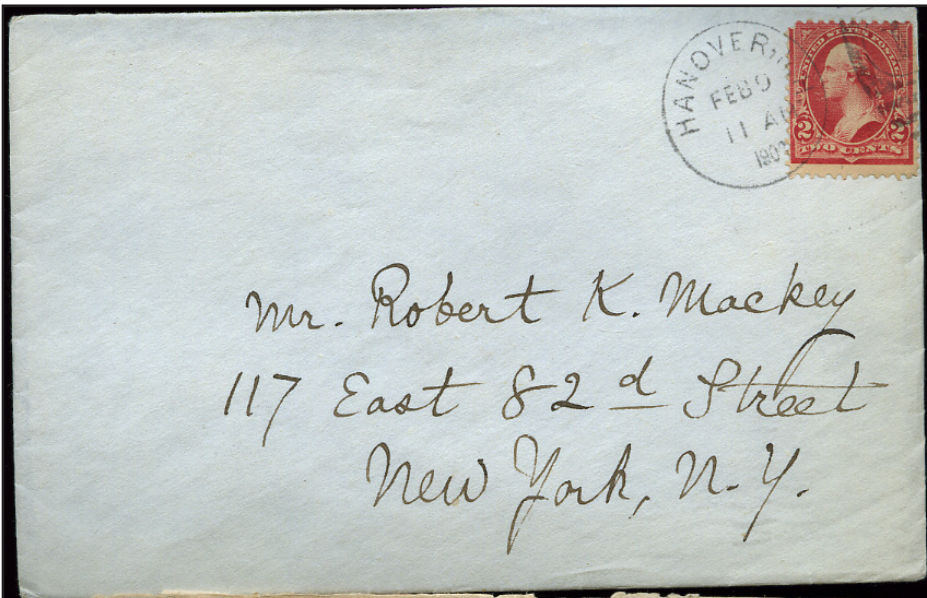 HANOVER, N
FEB 9
11 AM
190
UNITED STATES POSTAGE
2 2
TWO CENTS
Mr. Robert K. Mackey
117 East 82d Street
New York, N.Y.